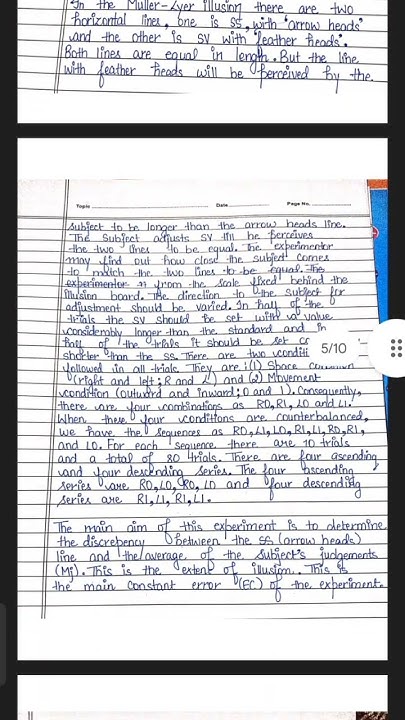 In the Muller-Lyer illusion there are two
horizontal lines, one is SS, with 'arrow heads'
and the other is SV with 'feather heads'.
Both lines are equal in length. But the line
with feather heads will be perceived by the
Topic
Date
Page No.
subject to be longer than the arrow heads line.
The Subject adjusts SV till he perceives
the two lines to be equal. The experimentor
may find out how close the subject comes
to match the two lines to be equal. The
experimentor from the scale fixed behind the
illusion board. The direction to the subject for
adjustment should be varied. In half of the
trials the SV should be set with a value
considerably longer than the standard and in
half of the trials it should be set
shorter than the SS. There are two
5/10
followed in all trials. They are: (1) Space
(right and left; R and L) and (2) Movement
condition (outward and inward; O and I). Consequently,
there are four combinations as RO, RI, LO and LI.
When these four conditions are counterbalanced,
we have the sequences as RO, LI, LO, RI, LI, RO, RI,
and LO. For each sequence there are 10 trials
and a total of 80 trials. There are four ascending
and four descending series. The four ascending
series are RO, LO, RO, LO and four descending
series are RI, LI, RI, LI.
The main aim of this experiment is to determine
the discrepency between the SS (arrow heads)
line and the average of the subject's judgements
(Mj). This is the extent of illusion. This is
the main constant error (EC) of the experiment.